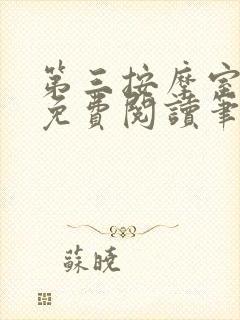 第三按摩室
免費閱讀筆
蘇曉